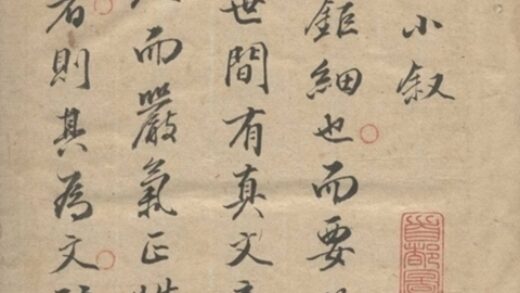 小叙
鉅細也而要
世間有真文
而嚴氣正性
者則其為文
首都